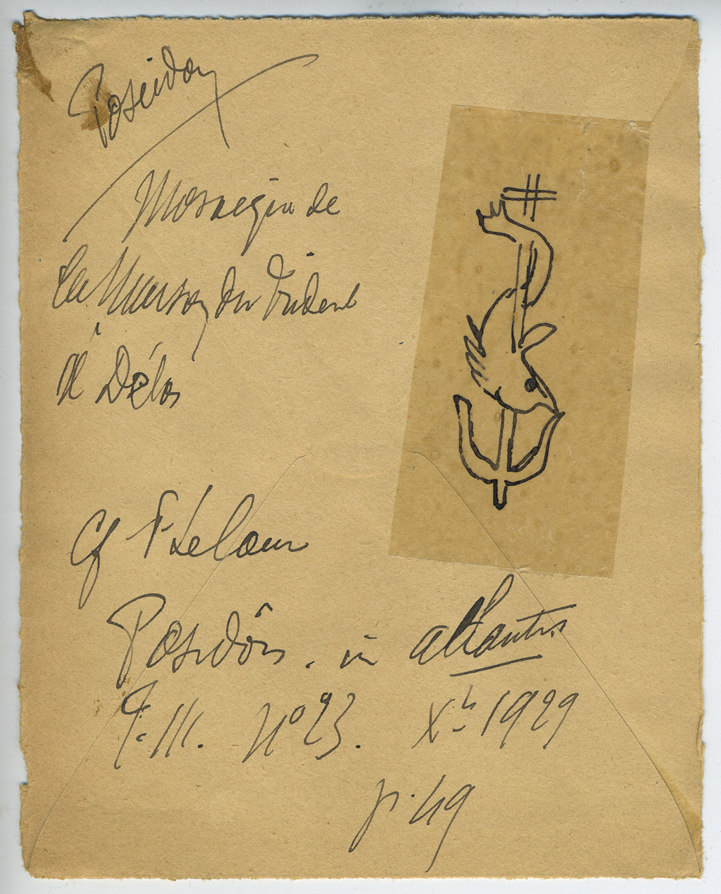 Poseidon
Mosaïque de
la Maison du Trident
à Délos
Cf F. Lecour
Poséidôn. in Atlantis
T. III. No 23. Xbre 1929
p. 49